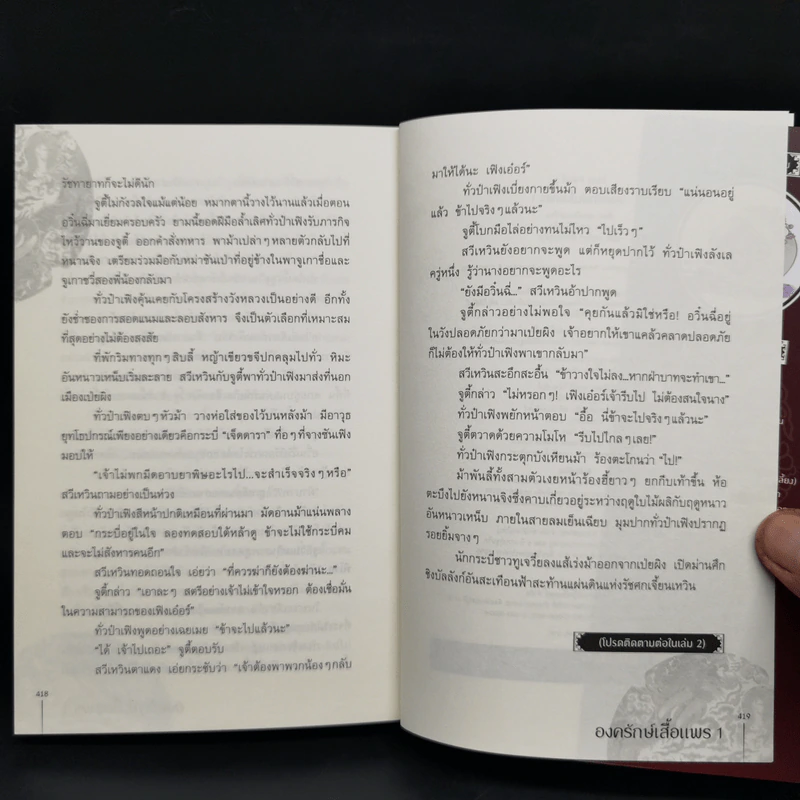 รัชทายาทก็จะไม่ดีนัก
จูตี้ไม่กังวลใจแม้แต่น้อย หมากตานี้วางไว้นานแล้วเมื่อตอน
อวิ๋นฉีมาเยี่ยมครอบครัว ยามนี้ยอดฝีมือล้ำเลิศทั่วป๋าเฟิงรับภารกิจ
ไหว้วานของจูตี้ ออกคำสั่งทหาร พาม้าเปล่าๆ หลายตัวกลับไปที่
หนานจิง เตรียมร่วมมือกับหม่าซันเป่าที่อยู่ข้างในพาจูเกาชื่อและ
จูเกาซวี่สองพี่น้องกลับมา
ทั่วป๋าเฟิงคุ้นเคยกับโครงสร้างวังหลวงเป็นอย่างดี อีกทั้ง
ยังช่ำชองการสอดแนมและลอบสังหาร จึงเป็นตัวเลือกที่เหมาะสม
ที่สุดอย่างไม่ต้องสงสัย
ที่พักริมทางทุกๆ สิบลี้ หญ้าเขียวขจีปกคลุมไปทั่ว หิมะ
อันหนาวเหน็บเริ่มละลาย สวีเหวินกับจูตี้พาทั่วป๋าเฟิงมาส่งที่นอก
เมืองเป่ยผิง
ทั่วป๋าเฟิงตบๆ หัวม้า วางห่อใส่ของไว้บนหลังม้า มีอาวุธ
ยุทโธปกรณ์เพียงอย่างเดียวคือกระบี่ “เจ็ดดารา” ทื่อๆ ที่จางซันเฟิง
มอบให้
“เจ้าไม่พกมีดอาบยาพิษอะไรไป...จะสำเร็จจริงๆ หรือ”
สวีเหวินถามอย่างเป็นห่วง
ทั่วป๋าเฟิงสีหน้าปกติเหมือนที่ผ่านมา มัดอานม้าแน่นพลาง
ตอบ “กระบี่อยู่ในใจ ลองทดสอบใต้หล้าดู ข้าจะไม่ใช้กระบี่คม
และจะไม่สังหารคนอีก”
สวีเหวินทอดถอนใจ เอ่ยว่า “ที่ควรฆ่าก็ยังต้องฆ่านะ...”
จูตี้กล่าว “เอาละๆ สตรีอย่างเจ้าไม่เข้าใจหรอก ต้องเชื่อมั่น
ในความสามารถของเฟิงเอ๋อร์”
ทั่วป๋าเฟิงพูดอย่างเฉยเมย “ข้าจะไปแล้วนะ”
“ได้ เจ้าไปเถอะ” จูตี้ตอบรับ
สวีเหวินตาแดง เอ่ยกระซับว่า “เจ้าต้องพาพวกน้องๆ กลับ
418
มาให้ได้นะ เฟิงเอ๋อร์”
ทั่วป๋าเฟิงเบี่ยงกายขึ้นม้า ตอบเสียงราบเรียบ “แน่นอนอยู่
แล้ว ข้าไปจริงๆ แล้วนะ”
จูตี้โบกมือไล่อย่างทนไม่ไหว “ไปเร็วๆ”
สวีเหวินยังอยากจะพูด แต่ก็หยุดปากไว้ ทั่วป๋าเฟิงลังเล
ครู่หนึ่ง รู้ว่านางอยากจะพูดอะไร
“ยังมีอวิ๋นฉี...” สวีเหวินอ้าปากพูด
จูตี้กล่าวอย่างไม่พอใจ “คุยกันแล้วมิใช่หรือ! อวิ๋นฉีอยู่
ในวังปลอดภัยกว่ามาเป่ยผิง เจ้าอยากให้เขาแคล้วคลาดปลอดภัย
ก็ไม่ต้องให้ทั่วป๋าเฟิงพาเขากลับมา”
สวีเหวินสะอึกสะอื้น “ข้าวางใจไม่ลง...หากฝ่าบาทจะทำเขา...”
จูตี้กล่าว “ไม่หรอกๆ! เฟิงเอ๋อร์เจ้ารีบไป ไม่ต้องสนใจนาง”
ทั่วป๋าเฟิงพยักหน้าตอบ “อื้อ นี่ข้าจะไปจริงๆ แล้วนะ”
จูตี้ตวาดด้วยความโมโห “รีบไปไกลๆ เลย!”
ทั่วป๋าเฟิงกระตุกบังเหียนม้า ร้องตะโกนว่า “ไป!”
ม้าพันลี้ทั้งสามตัวเงยหน้าร้องฮี้ยาวๆ ยกกีบเท้าขึ้น ห้อ
ตะบึงไปยังหนานจิงซึ่งคาบเกี่ยวอยู่ระหว่างฤดูใบไม้ผลิกับฤดูหนาว
อันหนาวเหน็บ ภายในสายลมเย็นเฉียบ มุมปากทั่วป๋าเฟิงปรากฏ
รอยยิ้มจางๆ
นักกระบี่ชาวทูเจวี๋ยลงแส้เร่งม้าออกจากเป่ยผิง เปิดม่านศึก
ชิงบัลลังก์อันสะเทือนฟ้าสะท้านแผ่นดินแห่งรัชศกเจี้ยนเหวิน
(โปรดติดตามต่อในเล่ม 2)
องครักษ์เสื้อแพร 1
419